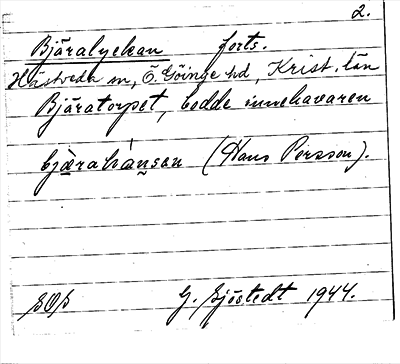 2.
Bjäralyckan forts.
Hästveda sn, Ö. Göinge hd, Krist. län
Bjäratorpet, bodde innehavaren
bjærahánsan (Hans Persson).
G. Sjöstedt 1944.